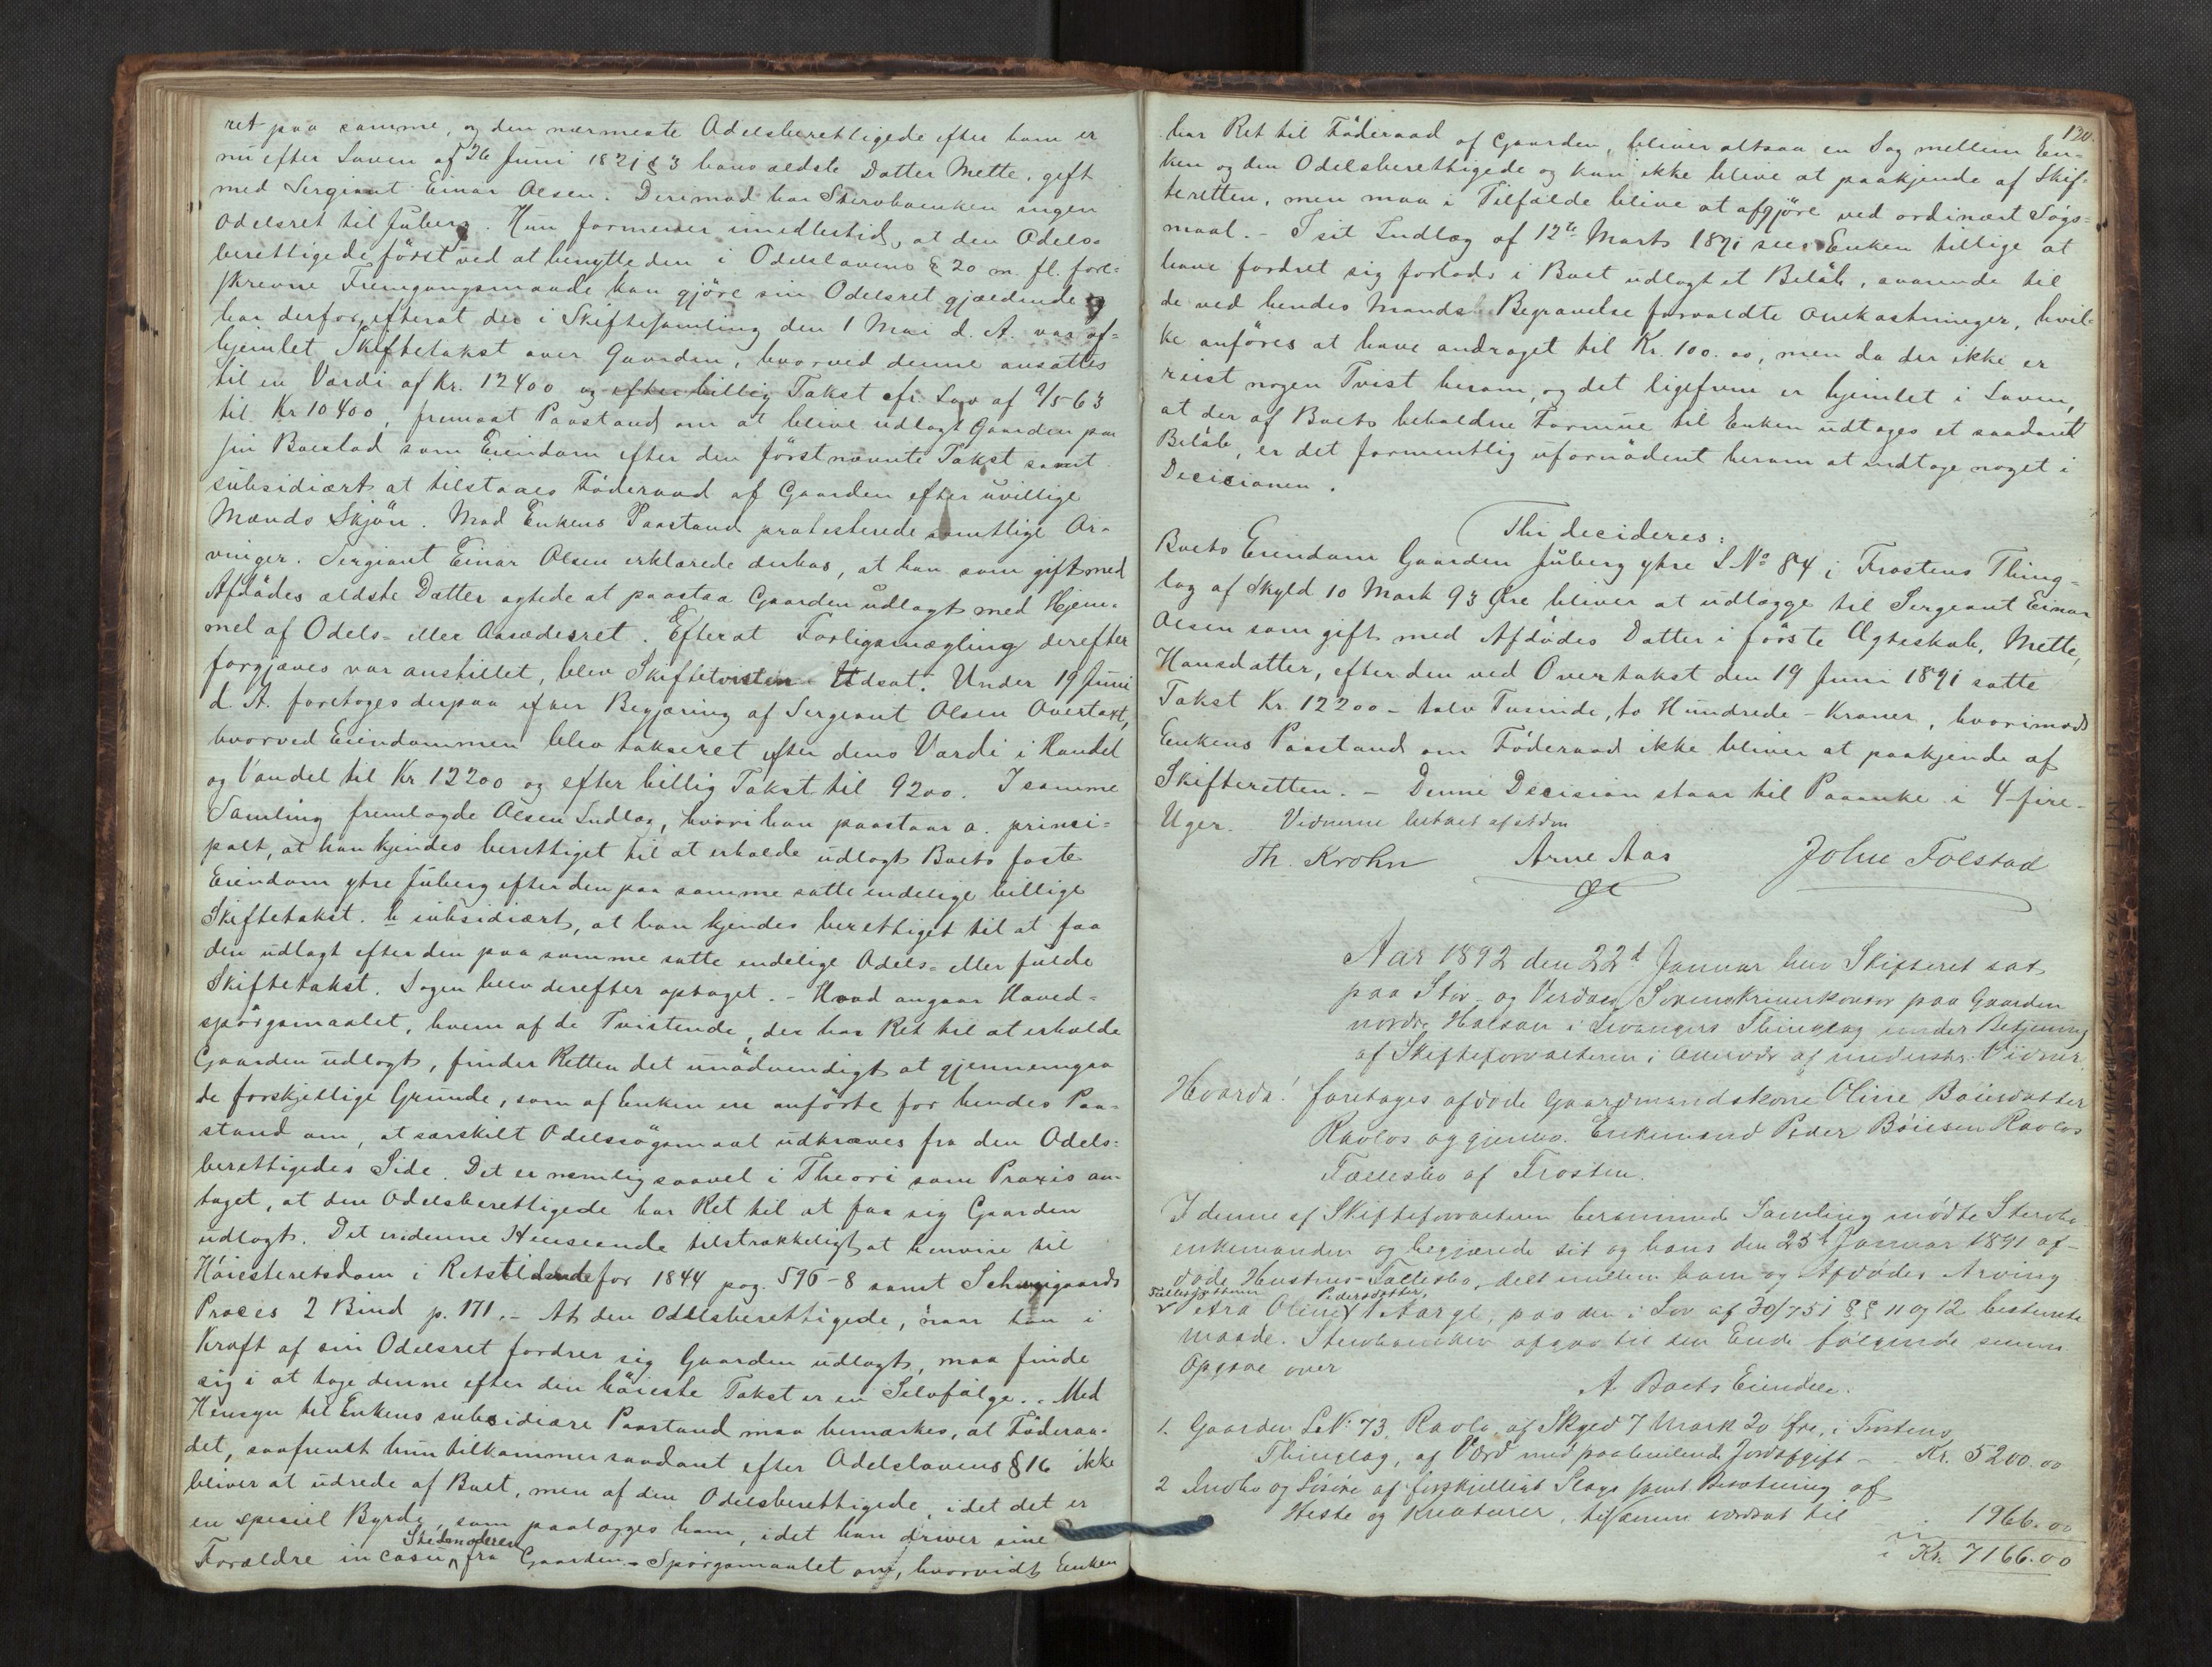 ret paa samme, og den nærmeste Odelsberettigede efter ham er
nu efter Loven af 26 Juni 1821 § 3 hans ældste Datter Mette, gift
med Sergiant Einar Olsen. Derimod har Stervboenken ingen
Odelsret til Juberg. Hun formener imidlertid, at den Odels-
berettigede först ved at benytte den i Odelslovens § 20 m. fl. fore-
skrevne Fremgangsmaade kan gjöre sin Odelsret gjældende og
har derfor, efterat der i Skiftesamling den 1 Mai d. A. var af-
hjemlet Skiftetakst over Gaarden, hvorved denne ansattes
til en Værdi af Kr. 12400 og efter billig Takst efr. Lov af 9/5 63
til Kr 10400, fremsat Paastand om at blive udlagt Gaarden paa
sin Boeslod som Eiendom efter den förstnævnte Takst samt
subsidiært at tilstaaes Föderaad af Gaarden efter uvillige
Mænds Skjön. Mod Enkens Paastand protesterede samtlige Ar-
vinger. Sergiant Einar Olsen erklærede derhos, at han som gift med
Afdödes ældste Datter agtede at paastaa Gaarden udlagt med Hjem-
mel af Odels- eller Aasædesret. Efterat Forligsmægling derefter
forgjæves var anstillet, blev Skiftetvisten Udsat. Under 19 Juni
d. A. foretoges derpaa efter Begjæring af Sergeant Olsen Overtaxt,
hvorved Eiendommen blev takseret efter dens Værdi i Handel
og Vandel til Kr 12200 og efter billig Takst til 9200. I samme
Samling fremlagde Olsen Indlæg, hvori han paastaar a. princi-
palt, at han kjendes berettiget til at erholde udlagt Boets faste
Eiendom ytre Juberg efter den paa samme satte endelige billige
Skiftetakst. b subsidiært, at han kjendes berettiget til at faa
den udlagt efter den paa samme satte endelige Odels- eller fulde
Skiftetakst. Sagen blev derefter optaget. - Hvad angaar Hoved-
spörgsmaalet, hvem af de Tvistende, der har Ret til at erholde
Gaarden udlagt, finder Retten det unödvendigt at gjennemgaa
de forskjellige Grunde, som af Enken ere anförte for hendes Paa-
stand om, at særskilt Odelssögsmaal udkræves fra den Odels-
berettigedes Side. Det er nemlig saavel i Theori som Praxis an-
taget, at den Odelsberettigede har Ret til at faa sig Gaarden
udlagt. Det er i denne Henseende tilstrækkeligt at henvise til
Höiesteretsdom i Retstidende for 1844 pag. 596-8 samt Schweigaards
Proces 2 Bind p. 171. - At den Odelsberettigede, naar han i
Kraft af sin Odelsret fordrer sig Gaarden udlagt, maa finde
sig i at tage denne efter den höieste Takst er en Selvfölge. - Med
Hensyn til Enkens subsidiære Paastand maa bemærkes, at Föderaa-
det, saafremt hun tilkommer saadant efter Odelslovens § 16 ikke
bliver at udrede af Boet, men af den Odelsberettigede, idet det er
en speciel Byrde, som paalægges ham, idet han driver sine
Stedmoderen
Forældre in casu fra Gaarden - Spörgsmaalet om, hvorvidt Enken
120.
har Ret til Föderaad af Gaarden, bliver altsaa en Sag mellem En-
ken og den Odelsberettigede og kan ikke blive at paakjende af Skif-
teretten, men maa i Tilfælde blive at afgjöre ved ordinært Sögs-
maal. - I sit Indlæg af 12te Marts 1891 sees Enken tillige at
have fordret sig forlods i Boet udlagt et Belöb, svarende til
de ved hendes Mands Begravelse forvoldte Omkostninger, hvil-
ke anföres at have andraget til Kr. 100.00, men da der ikke er
reist nogen Tvist herom, og det ligefrem er hjemlet i Loven,
at der af Boets beholdne Formue til Enken udtages et saadant
Belöb, er det formentlig ufornödent herom at indtage noget i
Decisionen.
Thi decideres:
Boets Eiendom Gaarden Juberg ytre L. No 84 i Frostens Thing-
lag af Skyld 10 Mark 93 Øre bliver at udlægge til Sergeant Einar
Olsen som gift med Afdödes Datter i förste Ægteskab, Mette
Hansdatter, efter den ved Overtakst den 19 Juni 1891 satte
Takst Kr. 12200 - tolv Tusinde, to Hundrede - Kroner, hvorimod
Enkens Paastand om Föderaad ikke bliver at paakjende af
Skifteretten. - Denne Decision staar til Paaanke i 4-fire-
Uger. Vidnerne
Th. Krohn Arne Aas John Folstad
Aar 1892 den 22d Januar blev Skifteret sat
paa Stör- og Verdals Sorenskriverkontor paa Gaarden
nordre Halsan i Levangers Thinglag under Betjening
af Skifteforvalteren i Overvær af underskr. Vidner.
Hvorda! foretoges afdöde Gaardmandskone Oline Böiesdatter
Ravlos og gjenlev. Enkemand Peder Böiesen Ravlos
Fællesbo af Frosten.
I denne af Skifteforvalteren berammede Samling mödte Stervbo-
enkemanden og begjærede sit og hans den 25d Januar 1891 af-
döde Hustrus Fællesbo, delt mellem ham og Afdödes Arving
Fællesdatteren Pedersdatter,
Petra Oline 1 Aar gl. paa den i Lov af 30/7 51 §§ 11 og 12 bestemte
Maade. Stervboenken. afgav til den Ende fölgende summ.
Opgave over
A Boets Eiendele.
1. Gaarden L. No. 73, Ravlo, af Skyld 7 Mark 20 Øre, i Frostens
Thinglag, af Værd med paahvilende Jordafgift - - Kr. 5200.00
2 Indbo og Lösöre af forskjelligt Slags samt Besætning af
Heste og Kreaturer, tilsammen værdsat til - 1966.00
Kr. 7166.00